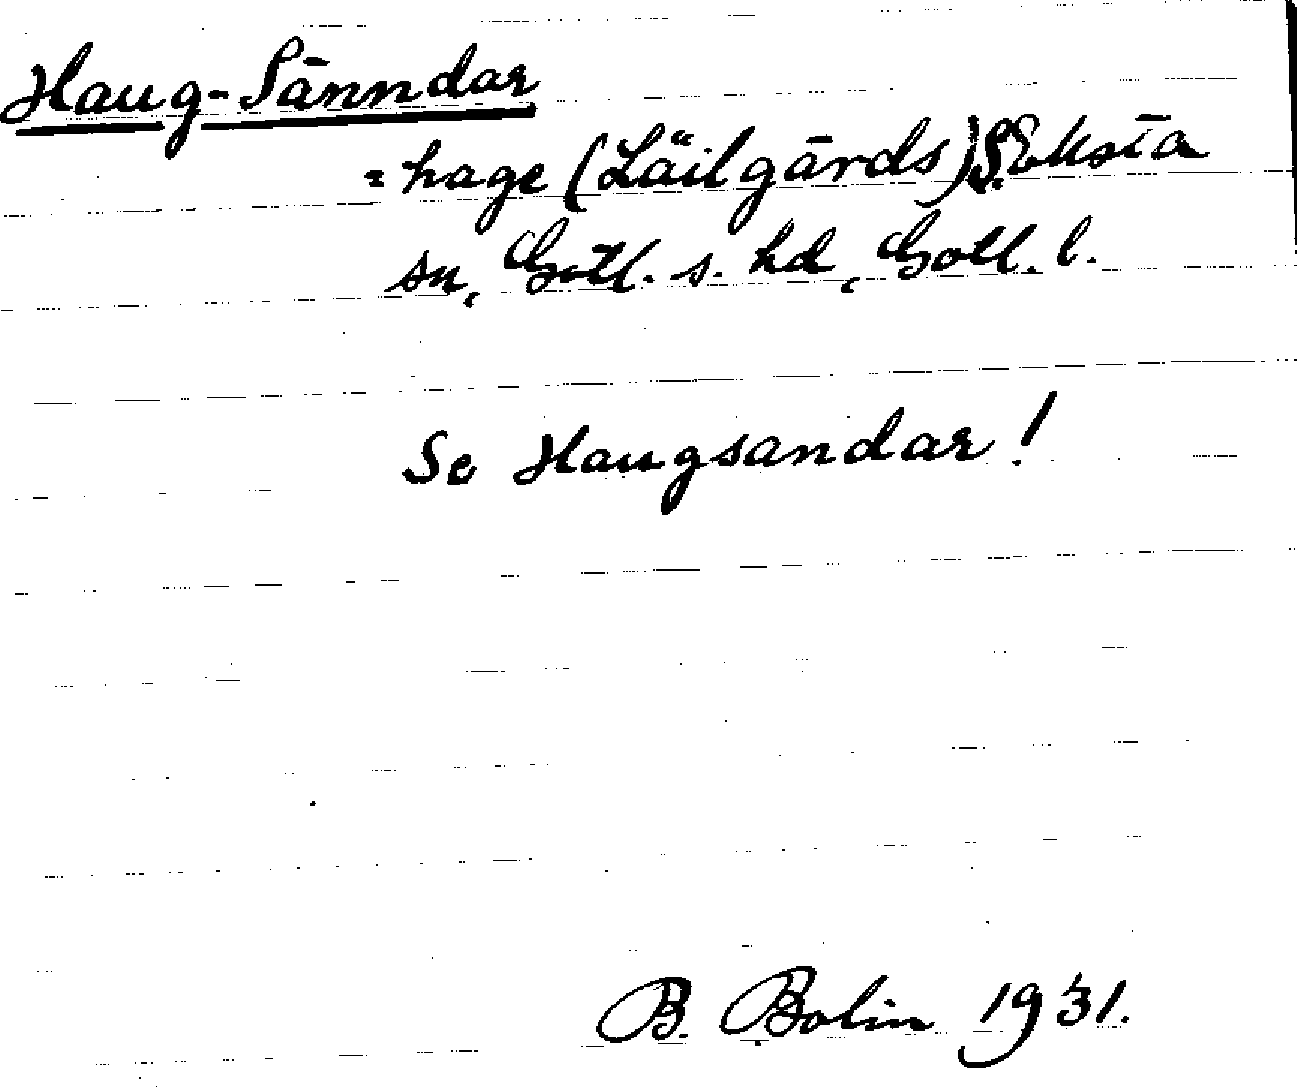 Haug-Sänndar
= hage (Läilgårds) S. Eksta
sn, Gotl. s. hd, Gotl. l.
Se Haugsandar!
B. Bolin 1931.